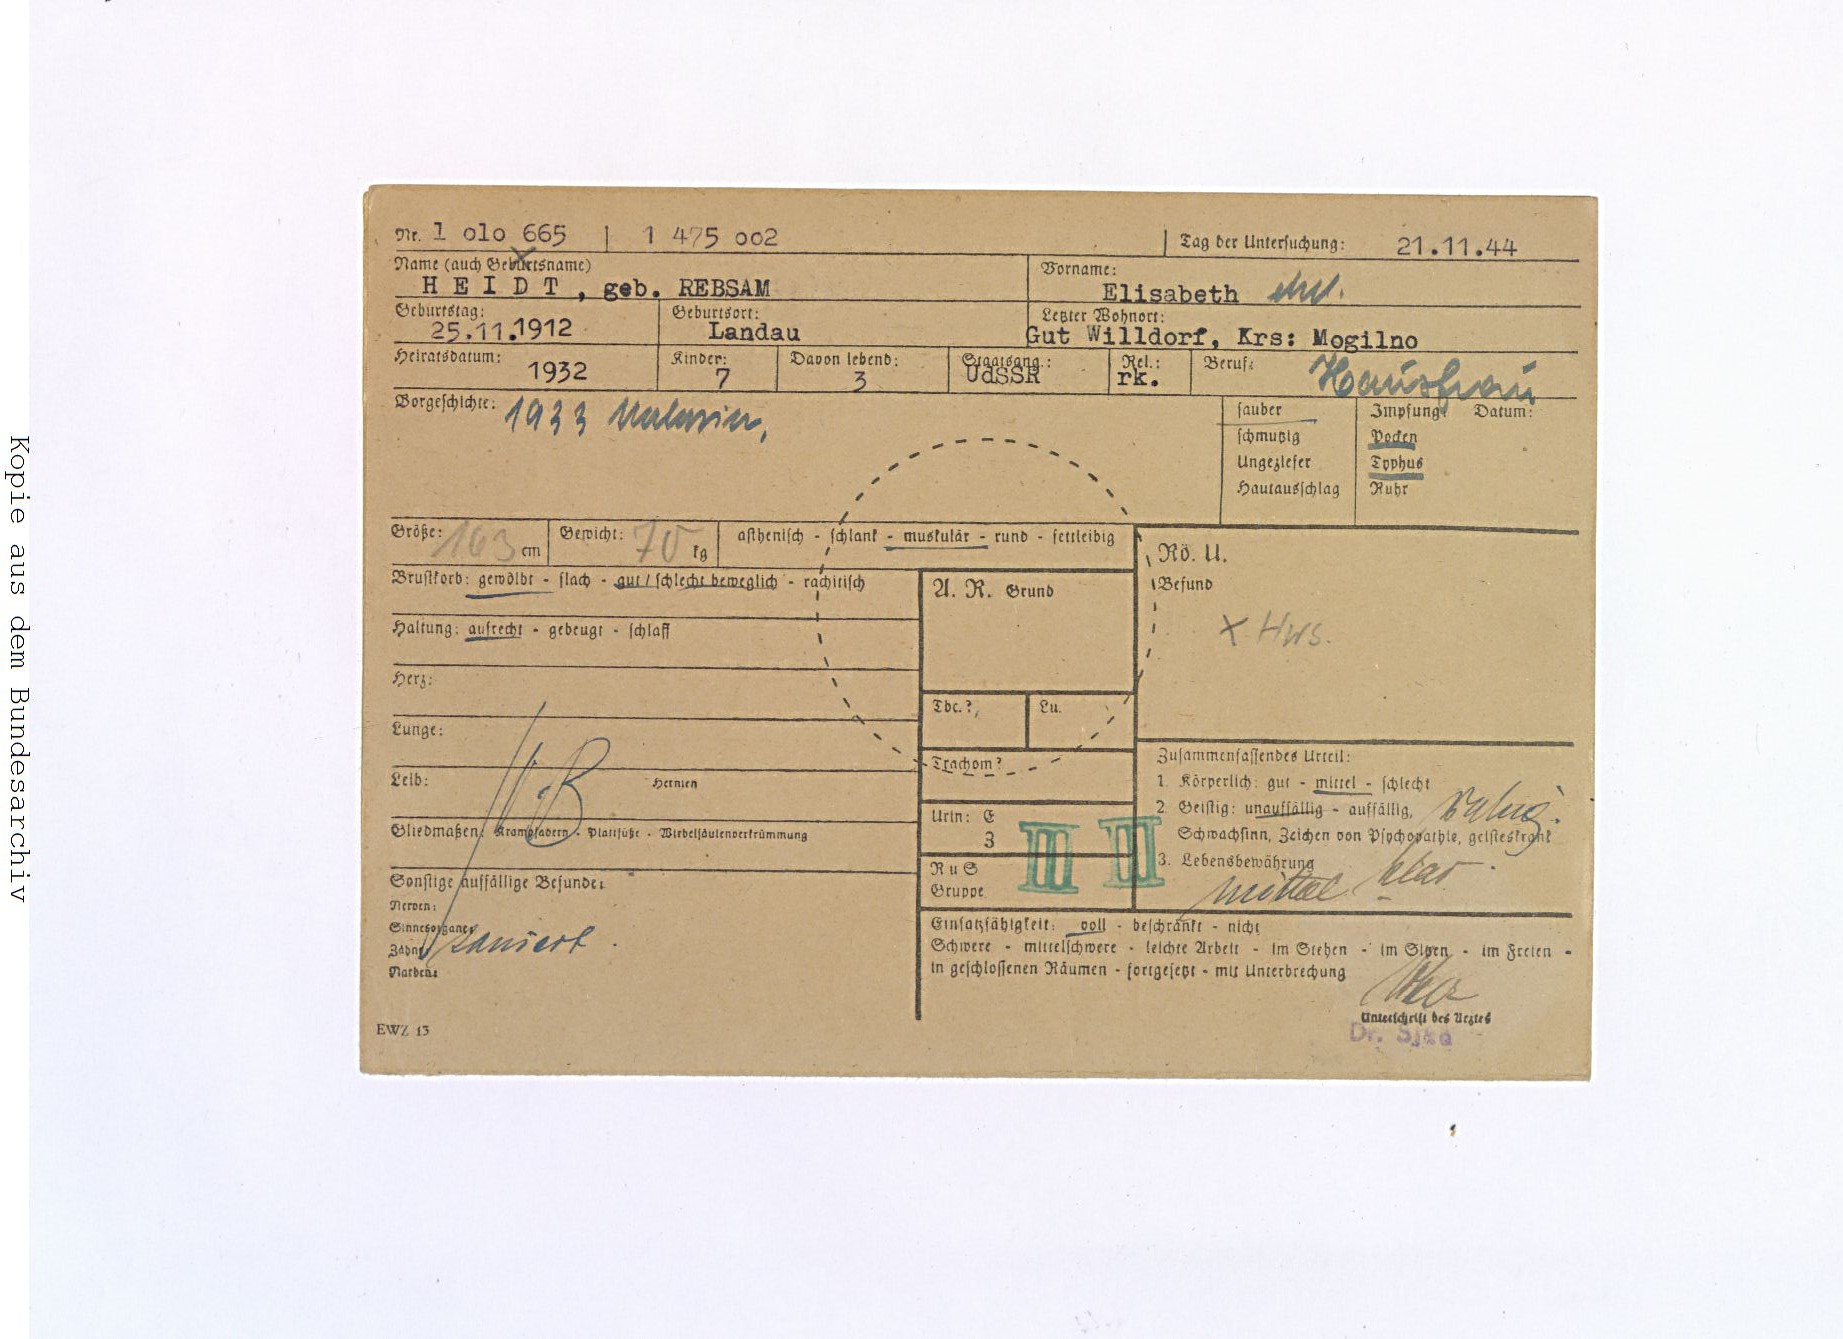 Nr. 1 olo 665 | 1 475 oo2
Tag der Untersuchung: 21.11.44
Name (auch Geburtsname)
H E I D T , geb. REBSAM
Vorname:
Elisabeth
Geburtstag:
25.11.1912
Geburtsort:
Landau
Letzter Wohnort:
Gut Willdorf, Krs: Mogilno
Heiratsdatum:
1932
Kinder:
7
Davon lebend:
3
Staatsang.:
UdSSR
Rel.:
rk.
Beruf:
Hausfrau
Vorgeschichte: 1933
sauber
schmutzig
Ungeziefer
Hautausschlag
Impfung: Datum:
Pocken
Typhus
Ruhr
Größe: 163 cm
Gewicht: 70 kg
asthenisch - schlank - muskulär - rund - fettleibig
Brustkorb: gewölbt - flach - gut / schlecht beweglich - rachitisch
Haltung: aufrecht - gebeugt - schlaff
Herz:
Lunge:
Leib:
Hernien
o.B
Gliedmaßen: Krampfadern - Plattfüße - Wirbelsäulenverkrümmung
Sonstige auffällige Befunde:
Nerven:
Sinnesorgane:
Zähne: saniert
Narben:
A. R. Grund
Tbc.?
Lu.
Trachom?
Urin: E
3
R u S
Gruppe
III III
Rö. U.
Befund
x Hws.
Zusammenfassendes Urteil:
1. Körperlich: gut - mittel - schlecht
2 Geistig: unauffällig - auffällig, ruhig.
Schwachsinn, Zeichen von Psychopathie, geisteskrank
klar
3. Lebensbewährung
mittel
Einsatzfähigkeit: voll - beschränkt - nicht
Schwere - mittelschwere - leichte Arbeit - im Stehen - im Sitzen - im Freien -
in geschlossenen Räumen - fortgesetzt - mit Unterbrechung
Unterschrift des Arztes
EWZ 13
Kopie aus dem Bundesarchiv